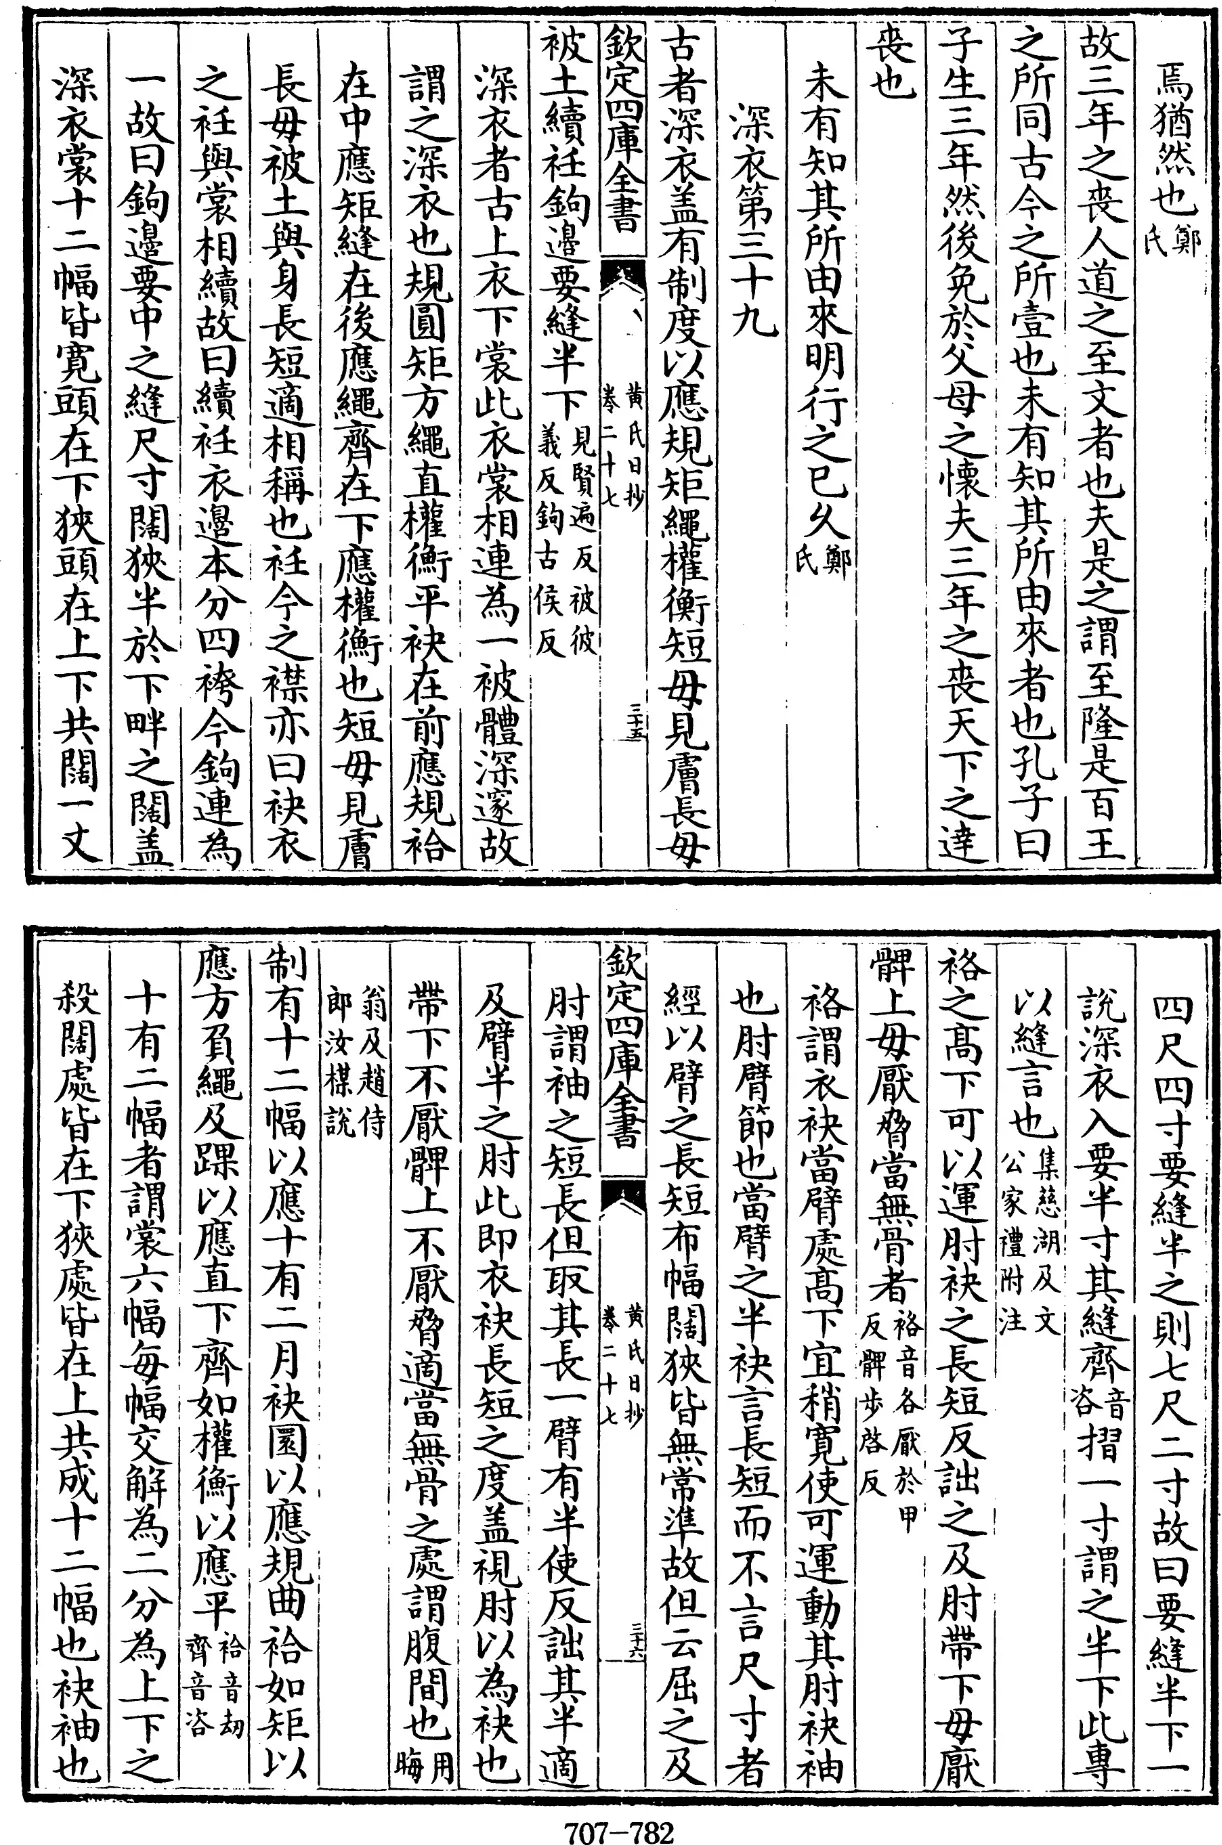 焉猶然也鄭氏
故三年之喪人道之至文者也夫是之謂至隆是百王
之所同古今之所壹也未有知其所由來者也孔子曰
子生三年然後免於父母之懷夫三年之喪天下之達
喪也
未有知其所由來明行之已乆鄭氏
深衣第三十九
古者深衣盖有制度以應規矩繩權衡短毋見膚長毋
欽定四庫全書
黄氏日抄
卷二十七
三十五
被土續衽鉤邉要縫半下見賢遍反被彼義反鉤古侯反
深衣者古上衣下裳此衣裳相連為一被體深邃故
謂之深衣也規圓矩方繩直權衡平袂在前應規袷
在中應矩縫在後應繩齊在下應權衡也短毋見膚
長毋被土與身長短適相稱也衽今之襟亦曰袂衣
之衽與裳相續故曰續衽衣邉本分四袴今鉤連為
一故曰鉤邉要中之縫尺寸闊狹半於下畔之闊盖
深衣裳十二幅皆寛頭在下狹頭在上下共闊一丈
四尺四寸要縫半之則七尺二寸故曰要縫半下一
説深衣入要半寸其縫齊音咨摺一寸謂之半下此專
以縫言也集慈湖及文公家禮附注
袼之髙下可以運肘袂之長短反詘之及肘帶下毋厭
髀上毋厭脅當無骨者袼音各厭於甲反髀步啓反
袼謂衣袂當臂處髙下宜稍寛使可運動其肘袂袖
也肘臂節也當臂之半袂言長短而不言尺寸者
經以臂之長短布幅闊狹皆無常準故但云屈之及
欽定四庫全書
黄氏日抄
卷二十七
三十六
肘謂袖之短長但取其長一臂有半使反詘其半適
及臂半之肘此即衣袂長短之度盖視肘以為袂也
帶下不厭髀上不厭脅適當無骨之處謂腹間也用晦
翁及趙侍郎汝楳說
制有十二幅以應十有二月袂圜以應規曲袷如矩以
應方負繩及踝以應直下齊如權衡以應平袷音劫齊音咨
十有二幅者謂裳六幅每幅交解為二分為上下之
殺闊處皆在下狹處皆在上共成十二幅也袂袖也
707-782